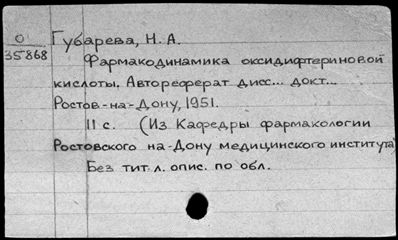 О
35868
Губарева, Н. А.
Фармакодинамика оксидифтериновой
кислоты. Автореферат дисс... докт...
Ростов-на-Дону, 1951.
11 с. (Из Кафедры фармакологии
Ростовского на-Дону медицинского института)
Без тит л. опис. по обл.